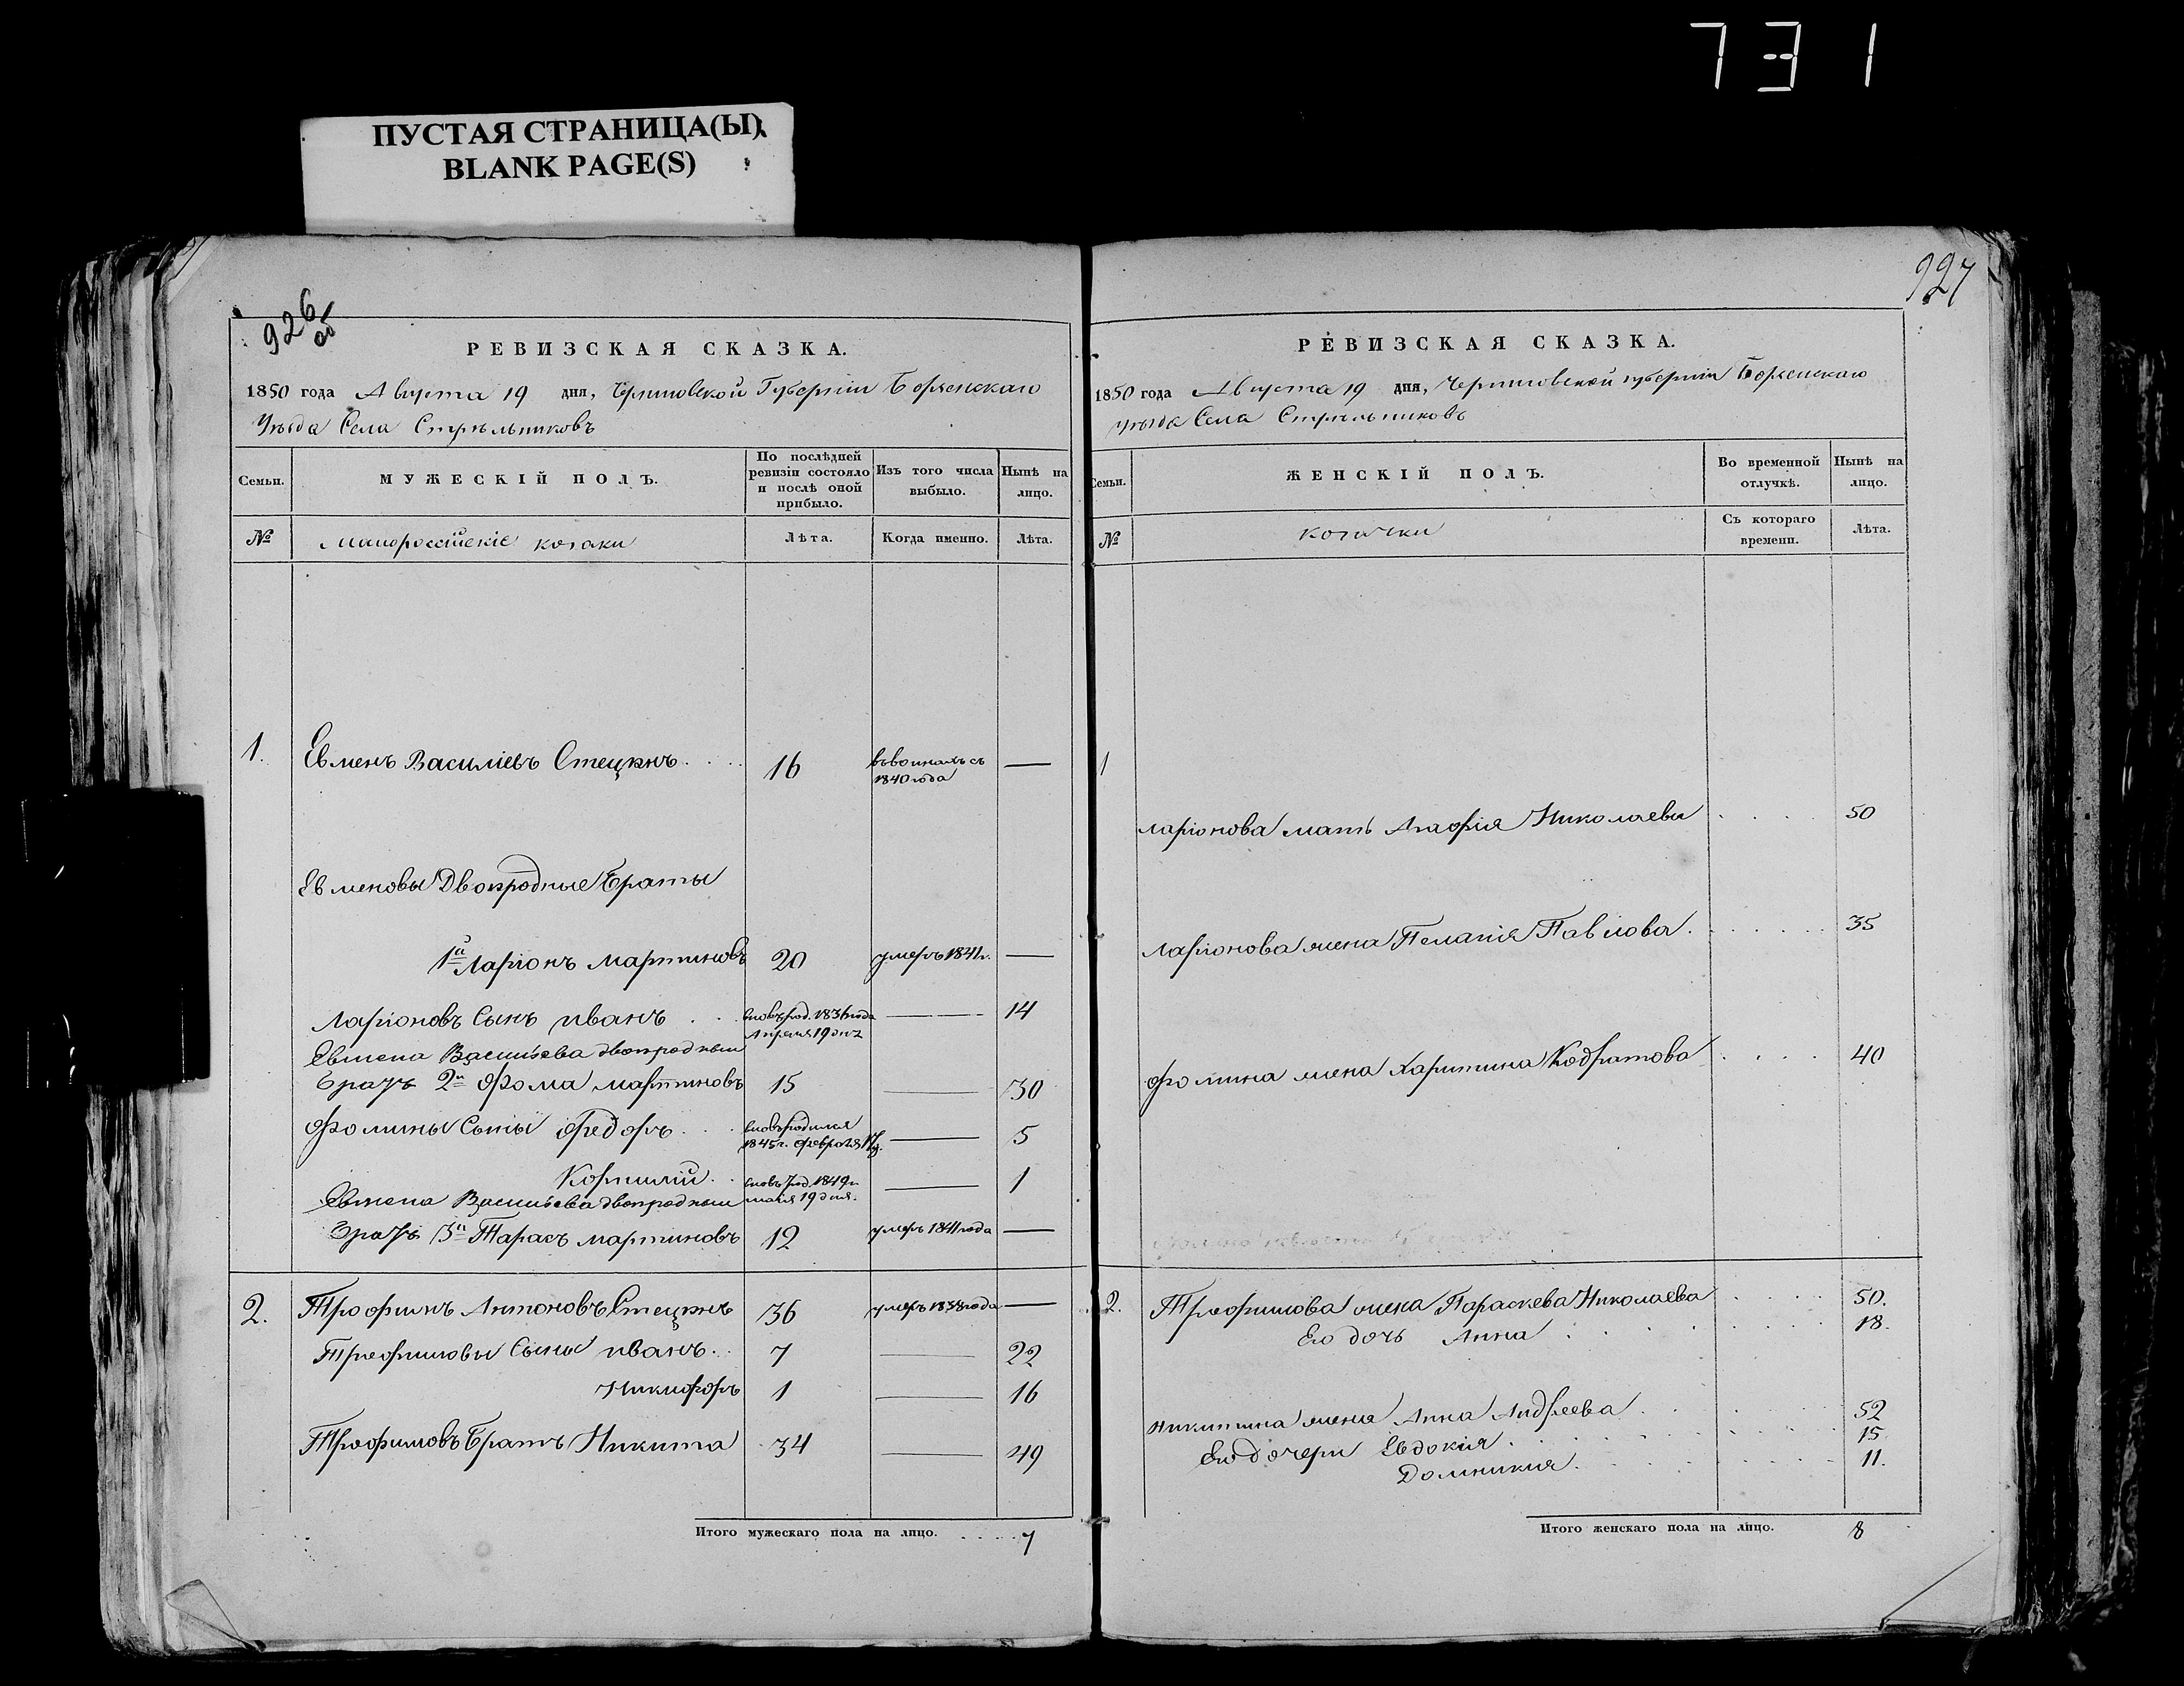 731
ПУСТАЯ СТРАНИЦА(Ы)
BLANK PAGE(S)
926
об
РЕВИЗСКАЯ СКАЗКА.
1850 года Августа 19 дня, Черниговской Губернiи Борзенскаго
Уѣзда Села Стрѣльниковъ
Семьи.
МУЖЕСКIЙ ПОЛЪ.
По послѣдней ревизiи состояло и послѣ оной прибыло.
Изъ того числа выбыло.
Нынѣ на лицо.
№
Малороссiйскiе козаки
Лѣта.
Когда именно.
Лѣта.
1. Евменъ Василiевъ Стецкнъ 16 въ воинахъ съ 1840 года —
Евменовы Двоюродные Браты
1й Ларiонъ Мартиновъ 20 умеръ 1841г. —
Ларiоновъ Сынъ иванъ вновь род. 1836 года Апреля 19 дня — 14
Евмена Васильева двоюродный
братъ 2й Фома мартиновъ 15 — 30
Фомины Сыны Федоръ вновь родился 1845 г. Февраля 17 д. — 5
Корнилiй вновь род. 1849 г. мая 19 дня. — 1
Евмена Васильева двоюродный
братъ 3й Тарасъ мартиновъ 12 умеръ 1841 года —
2. Трофимъ Антоновъ Стецкнъ 36 умеръ 1838 года —
Трофимовы Сыны иванъ 7 — 22
Никифоръ 1 — 16
Трофимовъ Братъ Никита 34 — 49
Итого мужескаго пола на лицо. 7
927
РЕВИЗСКАЯ СКАЗКА.
1850 года Августа 19 дня, Черниговской губернiи Борзенскаго
уѣзда Села Стрѣльниковъ
Семьи.
ЖЕНСКIЙ ПОЛЪ.
Во временной отлучкѣ.
Нынѣ на лицо.
№
козачки
Съ котораго времени.
Лѣта.
1
Ларiонова мать Агафiя Николаева 50
Ларiонова жена Пелагiя Павлова 35
Фомина жена Харитина Кодратова 40
2. Трофимова жена Параскева Николаева 50.
Его дочь Анна 18.
Никитина жена Анна Андреева 52
Его дочери Евдокiя 15
Домникия 11.
Итого женскаго пола на лицо. 8